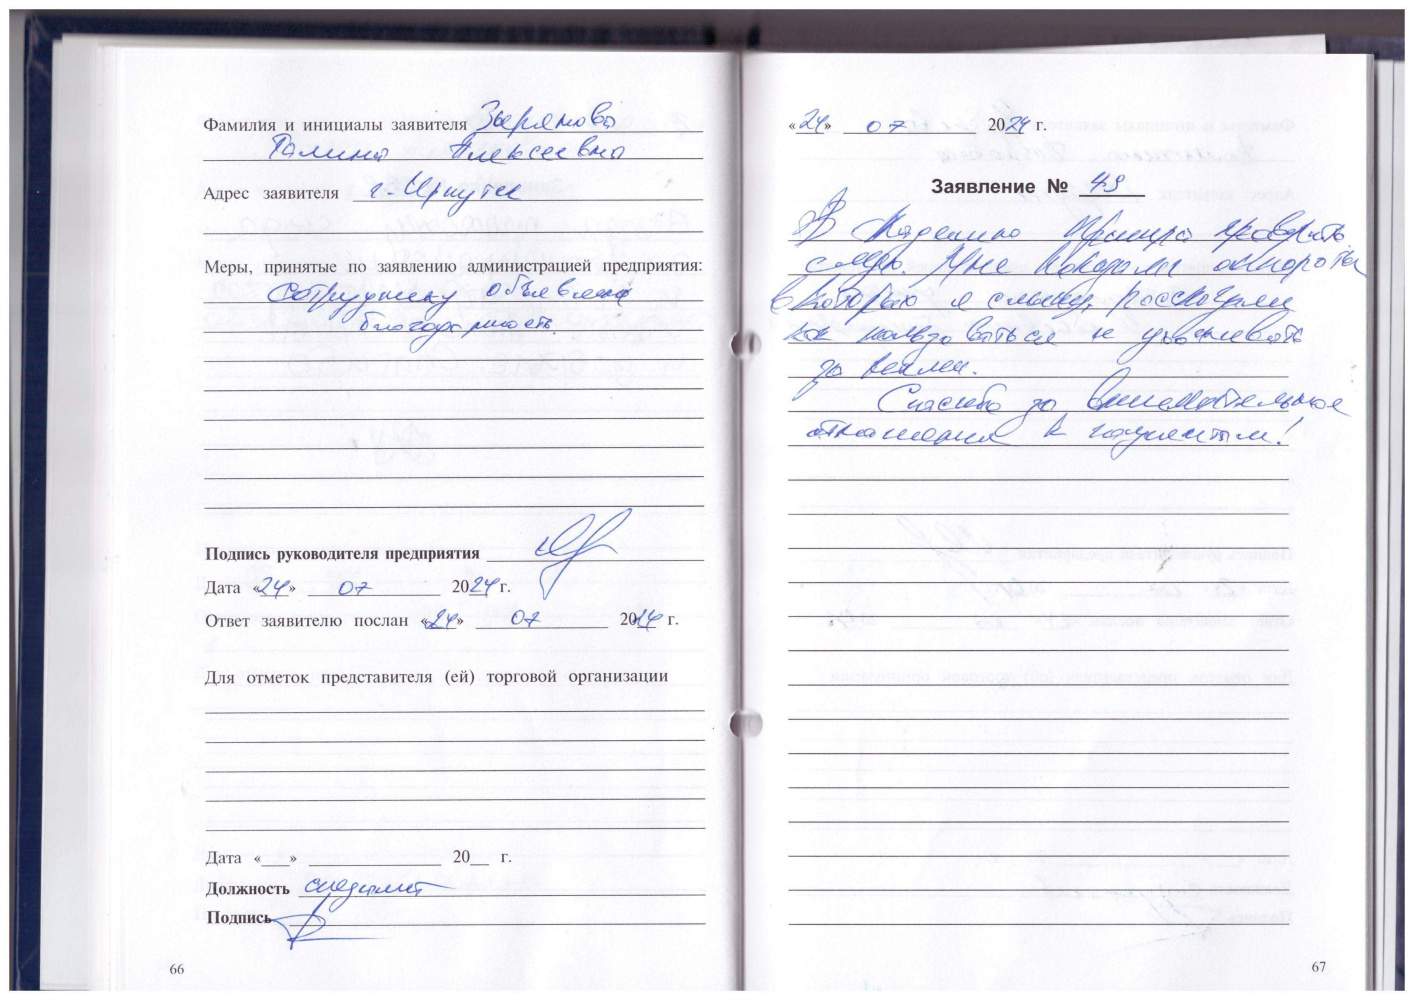 Фамилия и инициалы заявителя Зырянова
Галина Алексеевна
Адрес заявителя г. Иркутск
Меры, принятые по заявлению администрацией предприятия:
Сотруднику объявлена
благодарность.
Подпись руководителя предприятия
Дата «24» 07 2024 г.
Ответ заявителю послан «24» 07 2024 г.
Для отметок представителя (ей) торговой организации
Дата «___» ______________ 20__ г.
Должность специалист
Подпись
66
«24» 07 2024 г.
Заявление № 49
В Академию проверить
слух. Мне показали аппараты
в которых я слышу, рассказали
как пользоваться и ухаживать
за ними.
Спасибо за внимательное
отношения к пациентам!
67